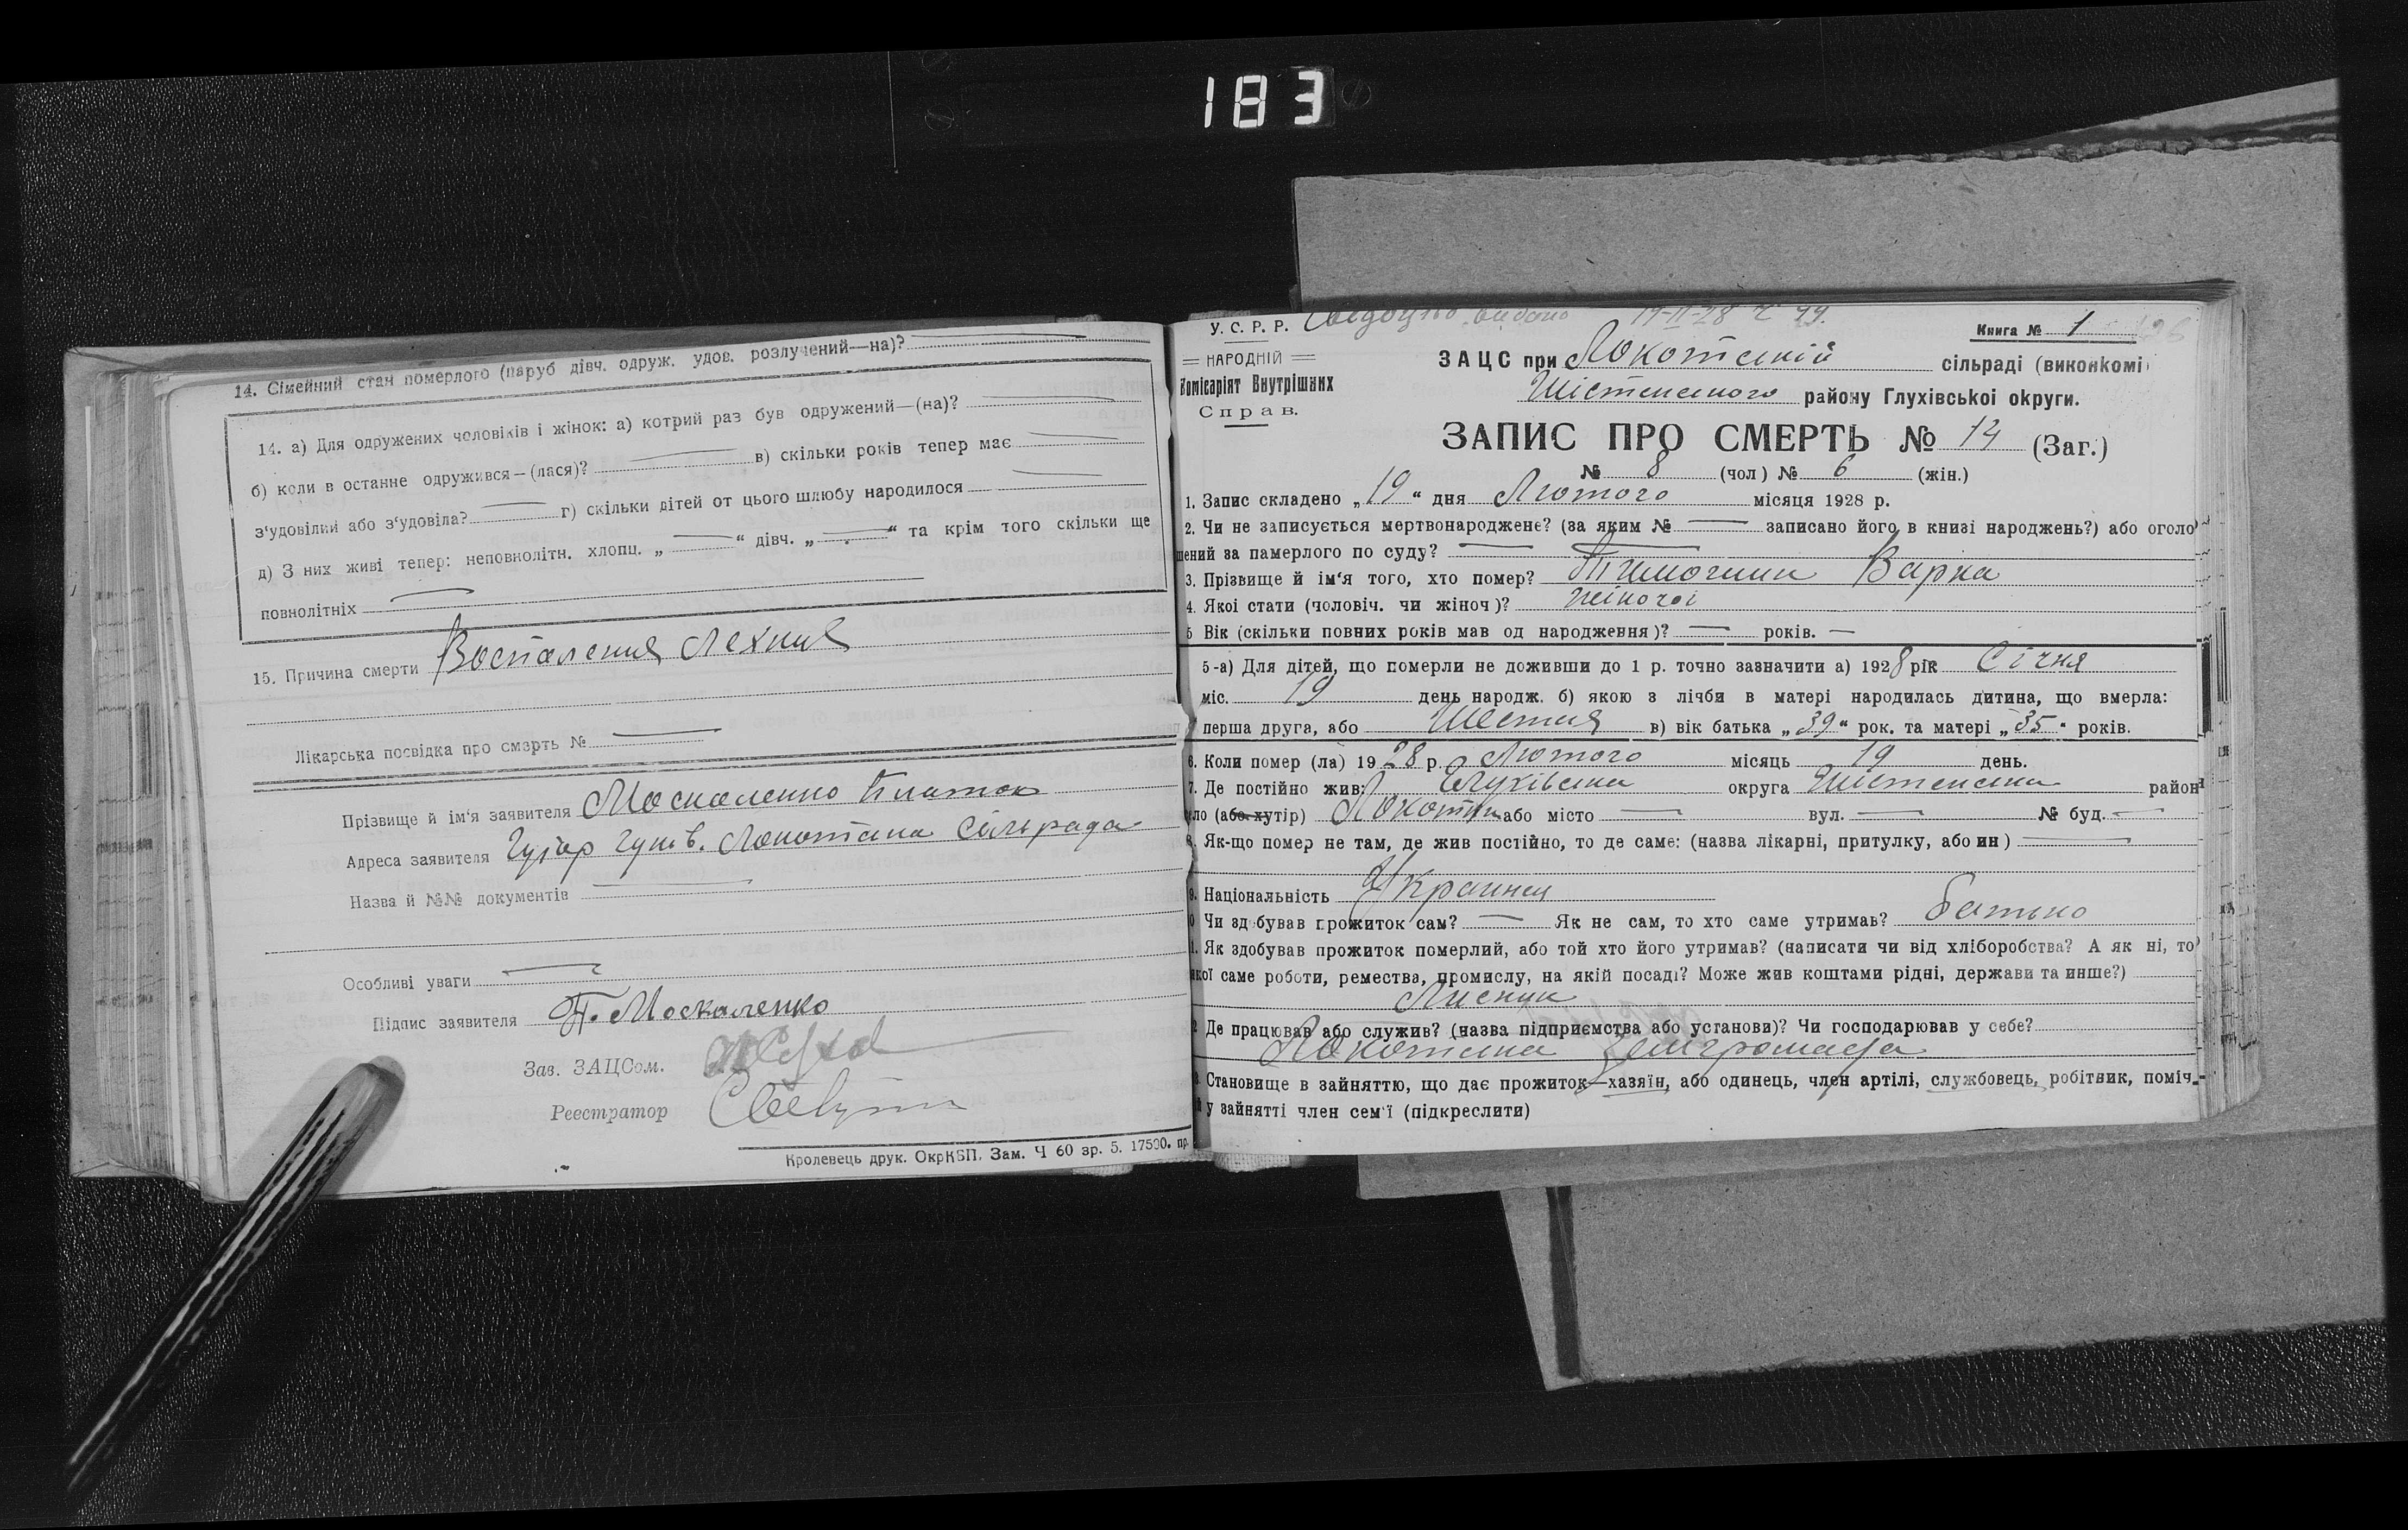 183
14. Сімейний стан померлого (паруб дівч. одруж. удов. розлучений—на)?
14. а) Для одружених чоловіків і жінок: а) котрий раз був одружений—(на)?
б) коли в останне одружився—(лася)? в) скільки років тепер має
з'удовілий або з'удовіла? г) скільки дітей от цього шлюбу народилося
д) З них живі тепер: неповнолітн. хлопц. „ “ дівч. „ “ та крім того скільки ще
повнолітніх
15. Причина смерти Воспаления Лехния
Лікарська посвідка про смэрть №
Прізвище й ім'я заявителя Москаленко Платон
Адреса заявителя Локотська Сільрада
Назва й №№ документів
Особливі уваги
Підпис заявителя П. Москаленко
Зав. ЗАЦСом.
Реестратор
Кролевець друк. ОкрКВП. Зам. Ч 60 зр. 5. 17500. пр.
У. С. Р. Р. Свідоцтво видано 19-II-28
Книга № 1
НАРОДНІЙ
Комісаріят Внутрішних
Справ.
ЗАЦС при Локотській сільраді (виконкомі
Шістенського району Глухівської округи.
ЗАПИС ПРО СМЕРТЬ № 14 (Заг.)
№ 8 (чол) № 6 (жін.)
1. Запис складено „19“ дня Лютого місяця 1928 р.
2. Чи не записується мертвонароджене? (за яким № записано його в книзі народжень?) або оголо
шений за памерлого по суду?
3. Прізвище й ім'я того, хто помер? Варка
4. Якої стати (чоловіч. чи жіноч)? жіночоі
5 Вік (скільки повних років мав од народження)? — років. —
5-а) Для дітей, що померли не доживши до 1 р. точно зазначити а) 1928 рік Січня
міс. 19 день народж. б) якою з лічби в матері народилась дитина, що вмерла:
перша друга, або Шестия в) вік батька „39“ рок. та матері „35“ років.
6. Коли помер (ла) 1928 р. Лютого місяць 19 день.
7. Де постійно жив: Глухівська округа Шістенська район
ло (або хутір) Локотки або місто — вул. — № буд. —
8. Як-що помер не там, де жив постійно, то де саме: (назва лікарні, притулку, або ин)
9. Національність Украинец
0 Чи здобував прожиток сам? — Як не сам, то хто саме утримав? батько
1. Як здобував прожиток померлий, або той хто його утримав? (написати чи від хліборобства? А як ні, то
якої саме роботи, ремества, промислу, на якій посаді? Може жив коштами рідні, держави та инше?)
Лисник
2 Де працював або служив? (назва підприємства або установи)? Чи господарював у себе?
Локотська Земгромада
3. Становище в зайняттю, що дає прожиток—хазяїн, або одинець, член артілі, службовець, робітник, поміч-
й у зайнятті член сем'ї (підкреслити)